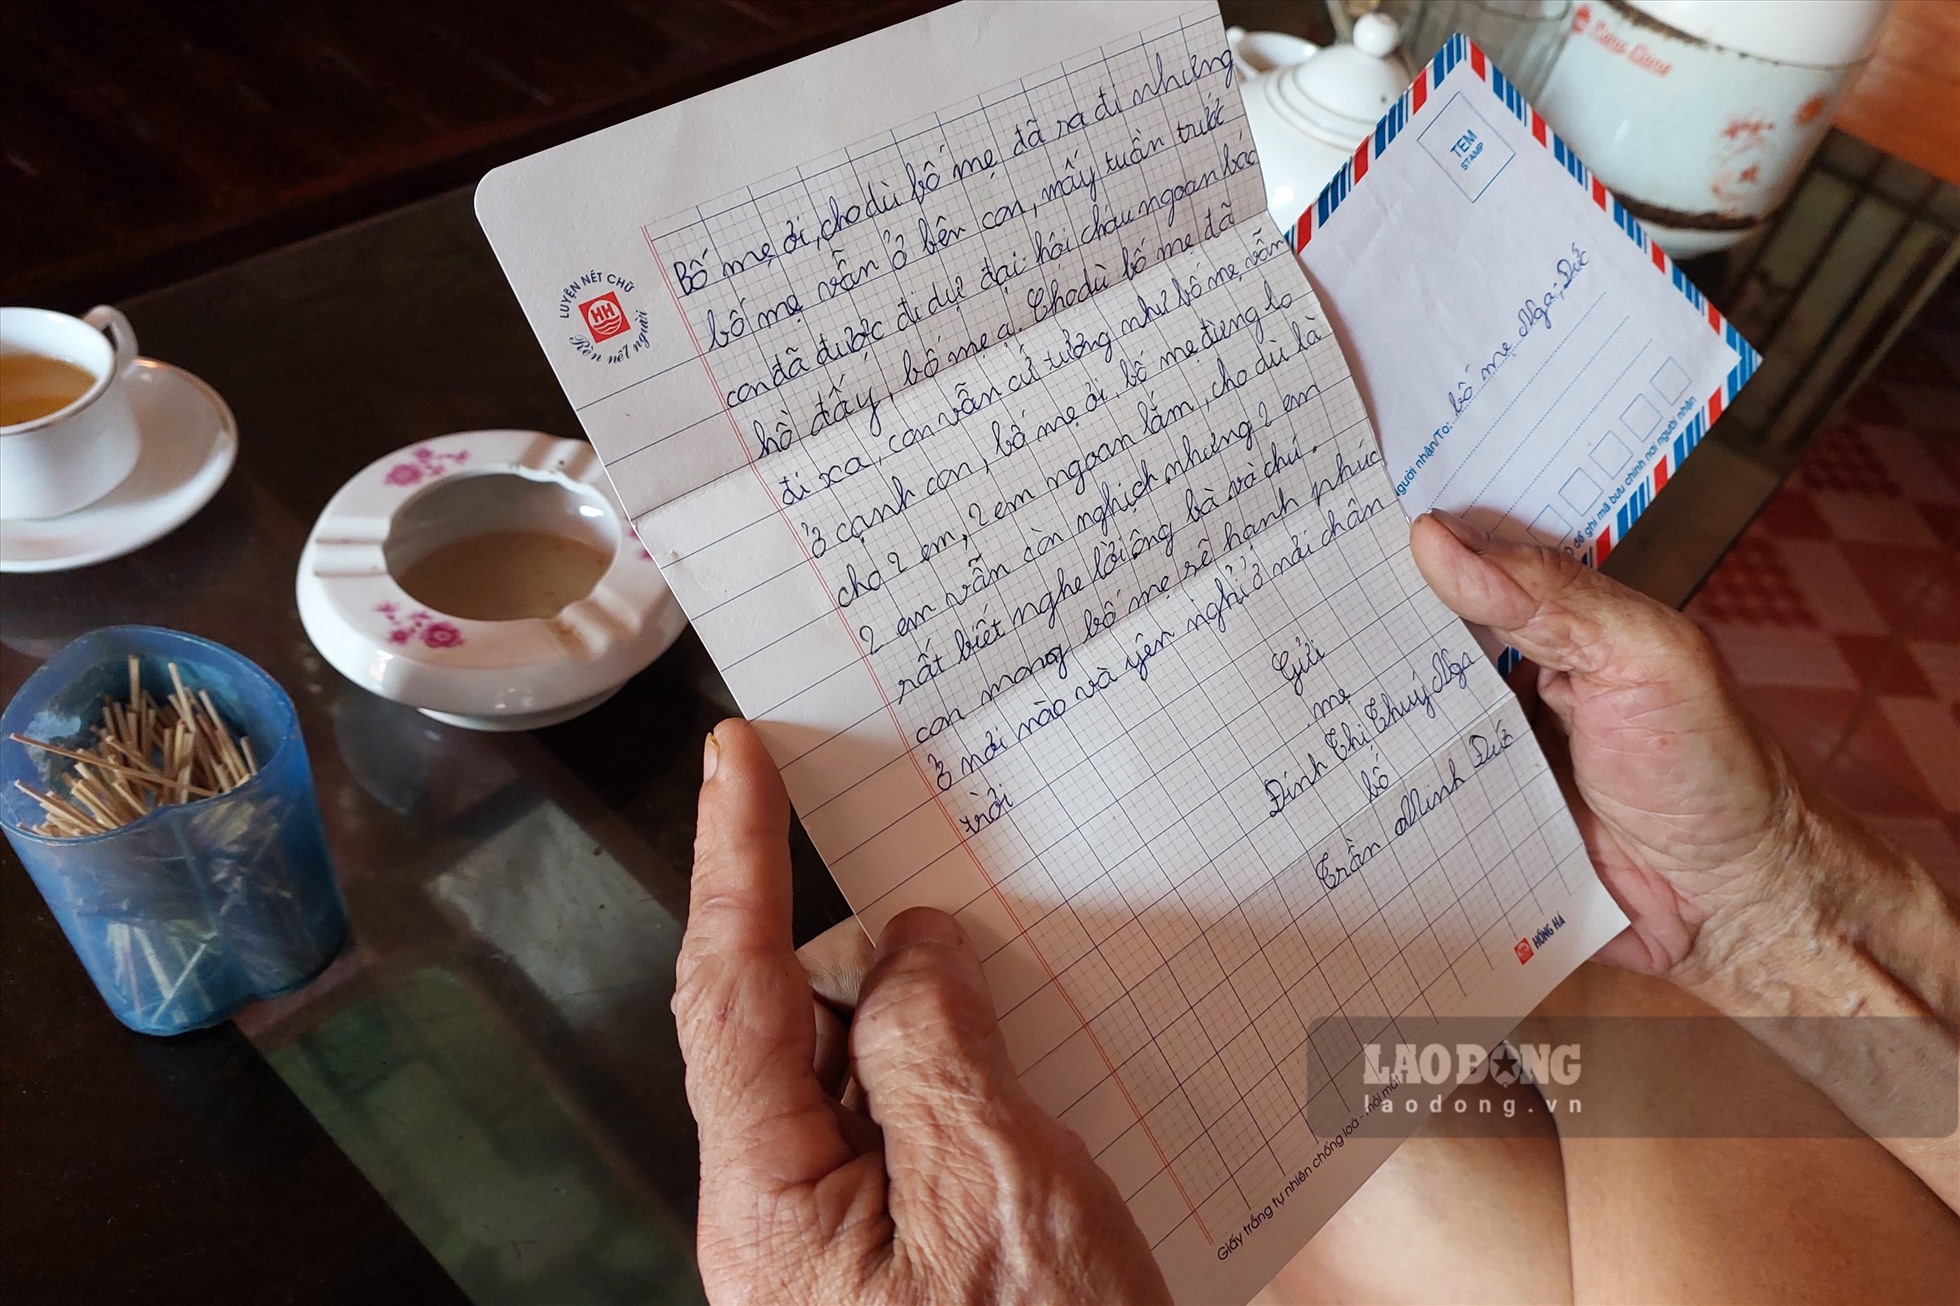 Bố mẹ ơi, cho dù bố mẹ đã ra đi nhưng
bố mẹ vẫn ở bên con, mấy tuần trước
con đã được đi dự đại hội cháu ngoan bác
hồ đấy, bố mẹ ạ. Cho dù bố mẹ đã
đi xa, con vẫn cứ tưởng như bố mẹ vẫn
ở cạnh con, bố mẹ ơi, bố mẹ đừng lo
cho 2 em, 2 em ngoan lắm, cho dù là
2 em vẫn còn nghịch nhưng 2 em
rất biết nghe lời ông bà và chú.
con mong bố mẹ sẽ hạnh phúc
ở nơi nào và yên nghỉ ở nơi chân
trời
Gửi
mẹ
Đinh Thị Thuý Nga
bố
Trần Minh Đức
LUYỆN NÉT CHỮ
HH
Rèn nết người
HỒNG HÀ
Giấy trắng tự nhiên chống loá - mỏi mắt
TEM
STAMP
người nhận/To: bố mẹ Nga, Đức
để ghi mã bưu chính nơi người nhận
LAO ĐỘNG
laodong.vn